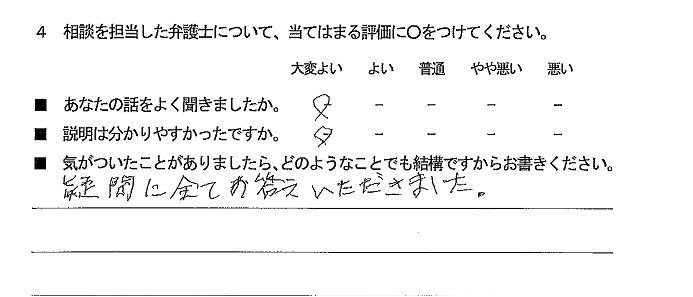 4 相談を担当した弁護士について、当てはまる評価に○をつけてください。
大変よい よい 普通 やや悪い 悪い
■ あなたの話をよく聞きましたか。 - - - - -
■ 説明は分かりやすかったですか。 - - - - -
■ 気がついたことがありましたら、どのようなことでも結構ですからお書きください。
疑問に全てお答えいただきました。